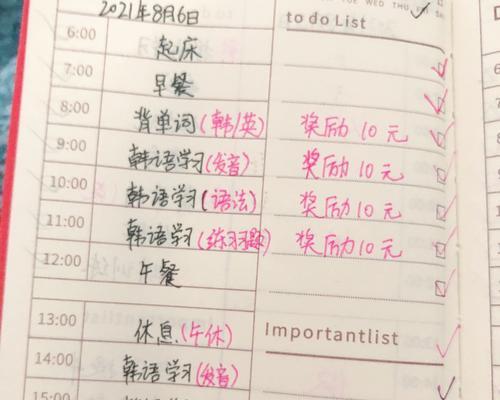 TUE WED THU FRI
2021年8月6日
to do List
6:00
起床
7:00
早餐
8:00
背单词(韩/英) 奖励10元
9:00
韩语学习(发音) 奖励10元
10:00
韩语学习(语法) 奖励10元
11:00
韩语学习(练习题) 奖励10元
12:00
午餐
13:00
休息(午休)
Importantlist
14:00
韩语学习(发音)
15:00